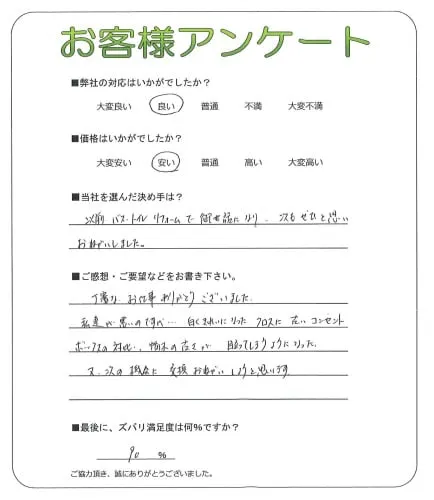 お客様アンケート
■弊社の対応はいかがでしたか？
大変良い 良い 普通 不満 大変不満
■価格はいかがでしたか？
大変安い 安い 普通 高い 大変高い
■当社を選んだ決め手は？
以前 バス・トイレ リフォームで 御世話になり、次もぜひと思い
おねがいしました。
■ご感想・ご要望などをお書き下さい。
丁寧な お仕事 ありがとう ございました。
私達が悪いのですが… 白くきれいになった クロスに 古い コンセント
ボックスの対比、 の古さが 目立ってしまうようになった。
又、次の機会に 交換 おねがい しようと思います。
■最後に、ズバリ満足度は何%ですか？
90 %
ご協力頂き、誠にありがとうございました。